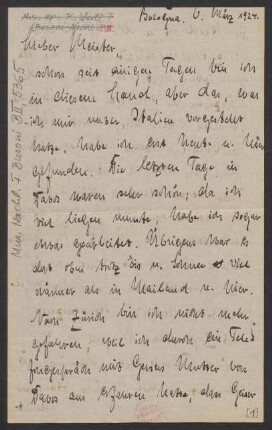 Mus. ep. K. Weill 7
(Busoni-Nachl. B II)
Mus. Nachl. F. Busoni B II, 5365
Bologna, 6. März 1924.
Lieber Meister,
schon seit einigen Tagen bin ich
in diesem Land, aber das, was
ich mir unter Italien vorgestellt
hatte, habe ich erst heute u. hier
gefunden. Die letzten Tage in
Davos waren sehr schön; da ich
viel liegen musste, habe ich sogar
etwas gearbeitet. Übrigens war es
dort oben trotz Eis u. Schnee viel
wärmer als in Mailand u. hier.
Nach Zürich bin ich nicht mehr
gefahren, weil ich durch ein Tele-
fongespräch mit Geisers Mutter von
Davos aus erfahren hatte, dass Geiser
[1]